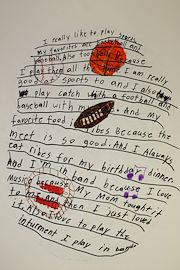 I really like to play sports
my favorites are basketball and
football. Also because
I play them all the time I am really
good at sports to and I also
play catch with a football and
baseball with my And my
favorite food ribes Because the
meet is so good. And I Always
eat ribes for my birthday dinner.
And I'm in band because I love
Music because My Mom tought it
to And then I just loved
it. Also I love to play the
intrument I play in band